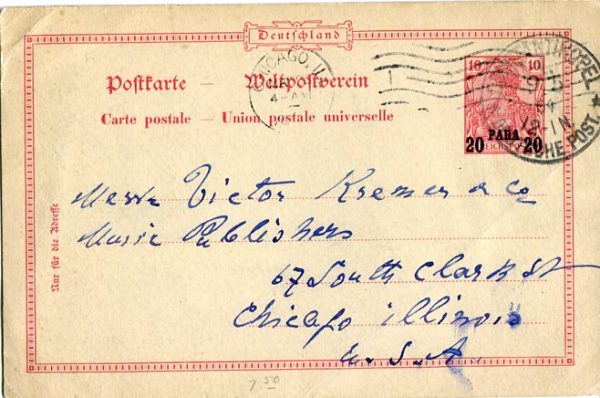 Deutschland
CHICAGO, ILL
4-AM
10 10
Postkarte – Weltpostverein
Carte postale – Union postale universelle
PARA
20 20
REICHSPOST
Nur für die Adresse
Messrs Victor Kremer & Co
Music Publishers
67 South Clark St
Chicago Illinois
U. S. A.
7 50